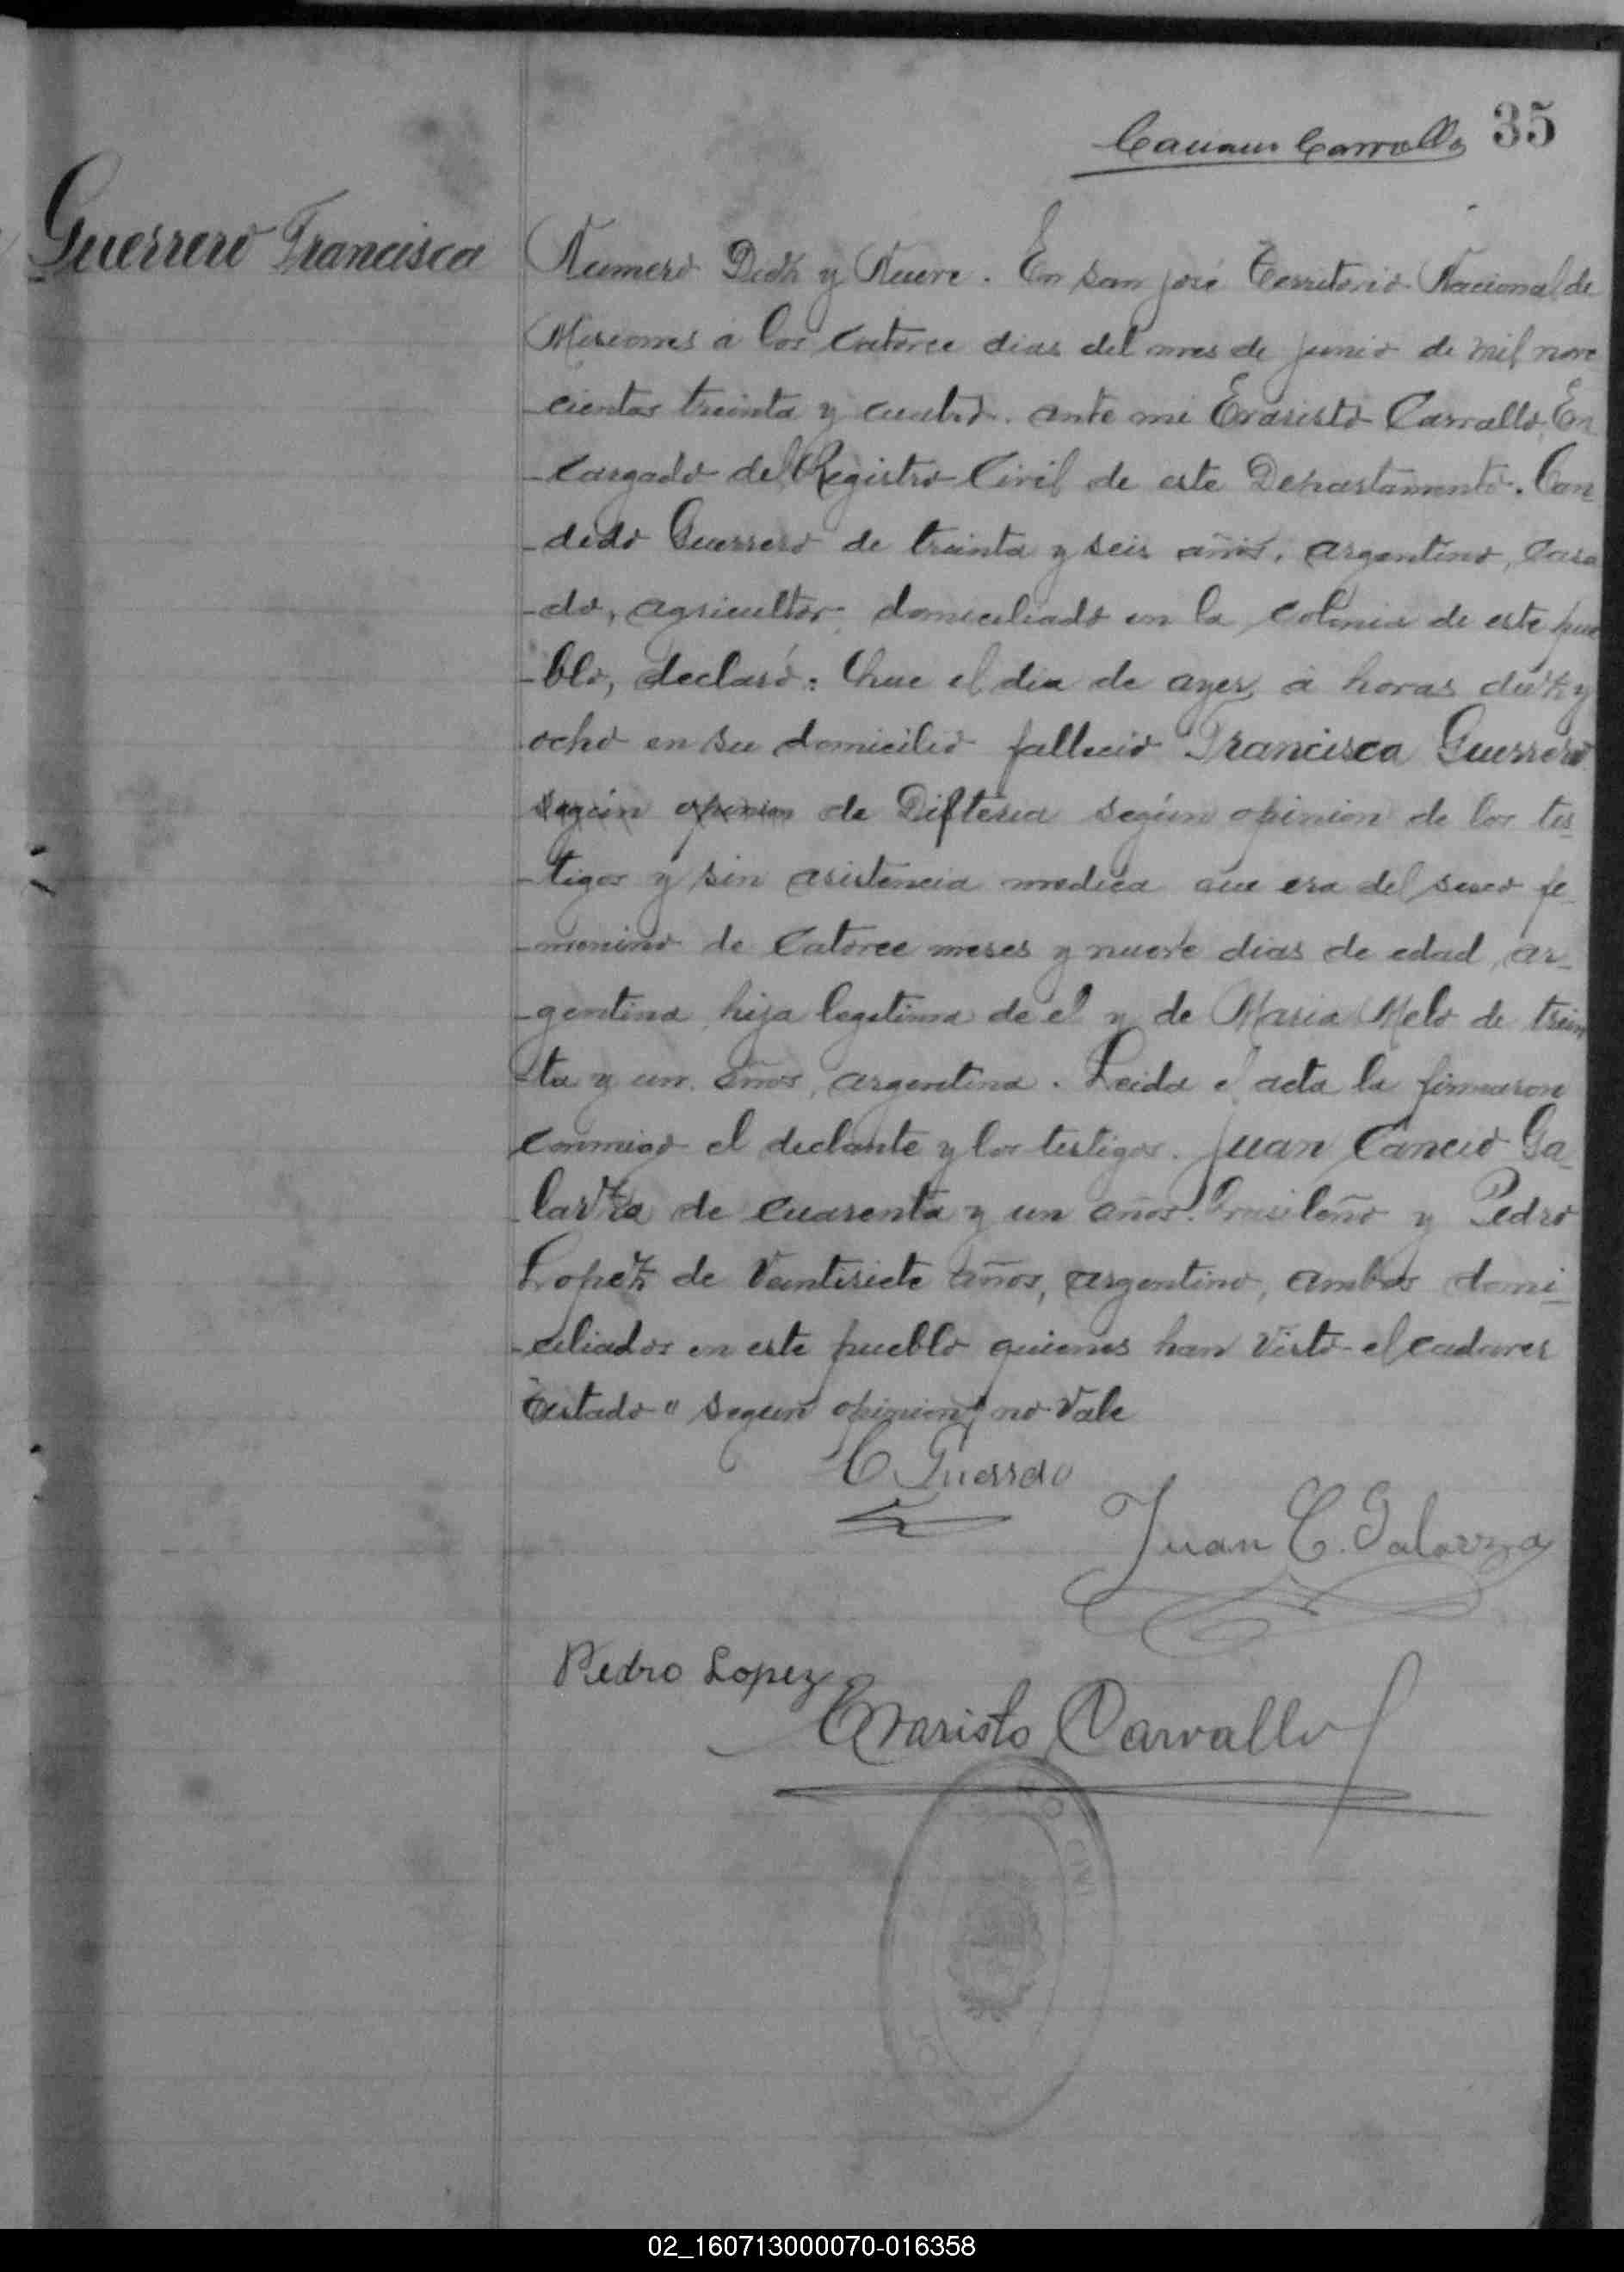 35
Guerrero Francisca
Numero Diez y Nueve. En San José Territorio Nacional de
Misiones a los catorce dias del mes de junio de mil nove
cientos treinta y cuatro. ante mi Evaristo Carvallo, En
-cargado del Registro Civil de este Departamento. Can
-dido Guerrero de treinta y seis años, argentino, casa
-do, agricultor domiciliado en la Colonia de este pue
-blo, declaró: Que el dia de ayer a horas diez y
ocho en su domicilio fallecio Francisca Guerrero
según opinion de Difteria según opinion de los tes
-tigos y sin asistencia medica que era del sexo fe
-menino de Catorce meses y nueve dias de edad, ar-
-gentina hija legitima de el y de Maria Melo de trein
-ta y un años, argentina. Leida el acta la firmaron
conmigo el declante y los testigos. Juan Cancio Ga-
-larza de cuarenta y un años. brasileño y Pedro
Lopez de Veintisiete años, argentino, ambos domi-
-ciliados en este pueblo quienes han visto el cadaver
Testado " segun opinion" no Vale
C Guerrero
Juan C. Galarza
Pedro Lopez
Evaristo Carvallo
02_160713000070-016358